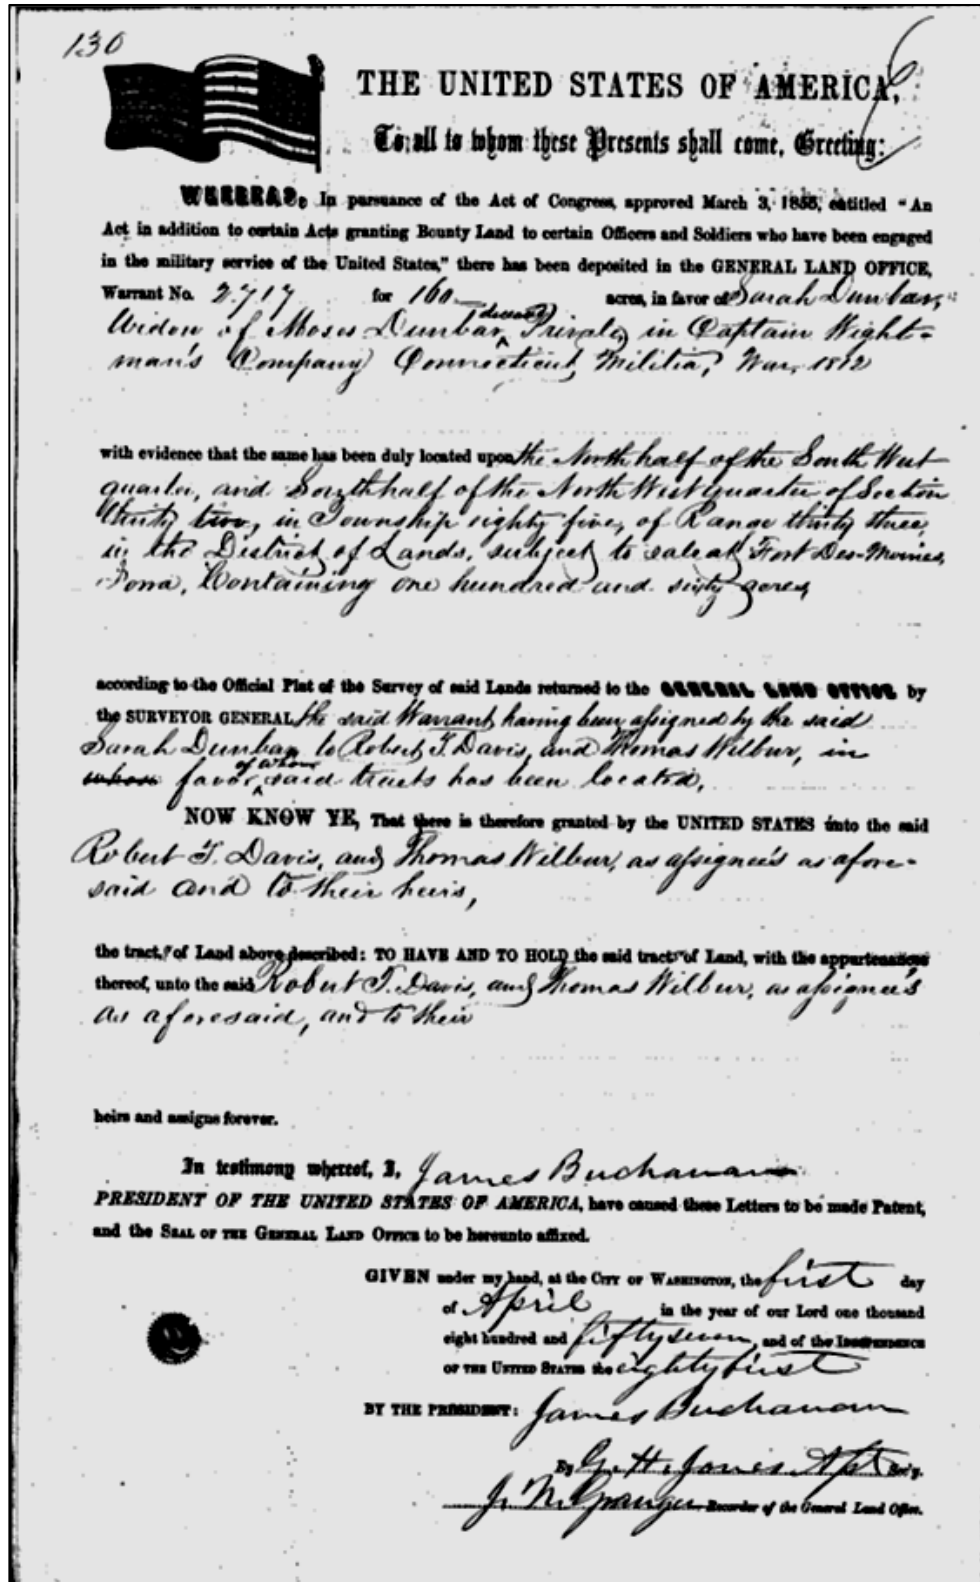 130
THE UNITED STATES OF AMERICA,
To all to whom these Presents shall come, Greeting:
WHEREAS, In pursuance of the Act of Congress, approved March 3, 1855, entitled "An
Act in addition to certain Acts granting Bounty Land to certain Officers and Soldiers who have been engaged
in the military service of the United States," there has been deposited in the GENERAL LAND OFFICE,
Warrant No. 2717 for 160 acres, in favor of Sarah Dunbar,
(deceased)
Widow of Moses Dunbar, Private, in Captain Wight-
man's Company Connecticut Militia, War, 1812
with evidence that the same has been duly located upon the North half of the South West
quarter, and South half of the North West quarter of Section
thirty two, in Township eighty five, of Range thirty three,
in the District of Lands, subject to sale at Fort Des-Moines,
Iowa, Containing one hundred and sixty acres,
according to the Official Plat of the Survey of said Lands returned to the GENERAL LAND OFFICE by
the SURVEYOR GENERAL the said Warrant having been assigned by the said
Sarah Dunbar to Robert T. Davis, and Thomas Wilbur, in
of whom
whose favor said tracts has been located,
NOW KNOW YE, That there is therefore granted by the UNITED STATES unto the said
Robert T. Davis, and Thomas Wilbur, as assignee's as afore-
said and to their heirs,
the tracts of Land above described: TO HAVE AND TO HOLD the said tracts of Land, with the appurtenances
thereof, unto the said Robert T. Davis, and Thomas Wilbur, as assignee's
as aforesaid, and to their
heirs and assigns forever.
In testimony whereof, I, James Buchanan
PRESIDENT OF THE UNITED STATES OF AMERICA, have caused these Letters to be made Patent,
and the SEAL OF THE GENERAL LAND OFFICE to be hereunto affixed.
GIVEN under my hand, at the CITY OF WASHINGTON, the first day
of April in the year of our Lord one thousand
eight hundred and fifty seven, and of the INDEPENDENCE
OF THE UNITED STATES the eighty first
BY THE PRESIDENT: James Buchanan
By G. H. Jones Asst Sec'y.
J. N. Granger Recorder of the General Land Office.